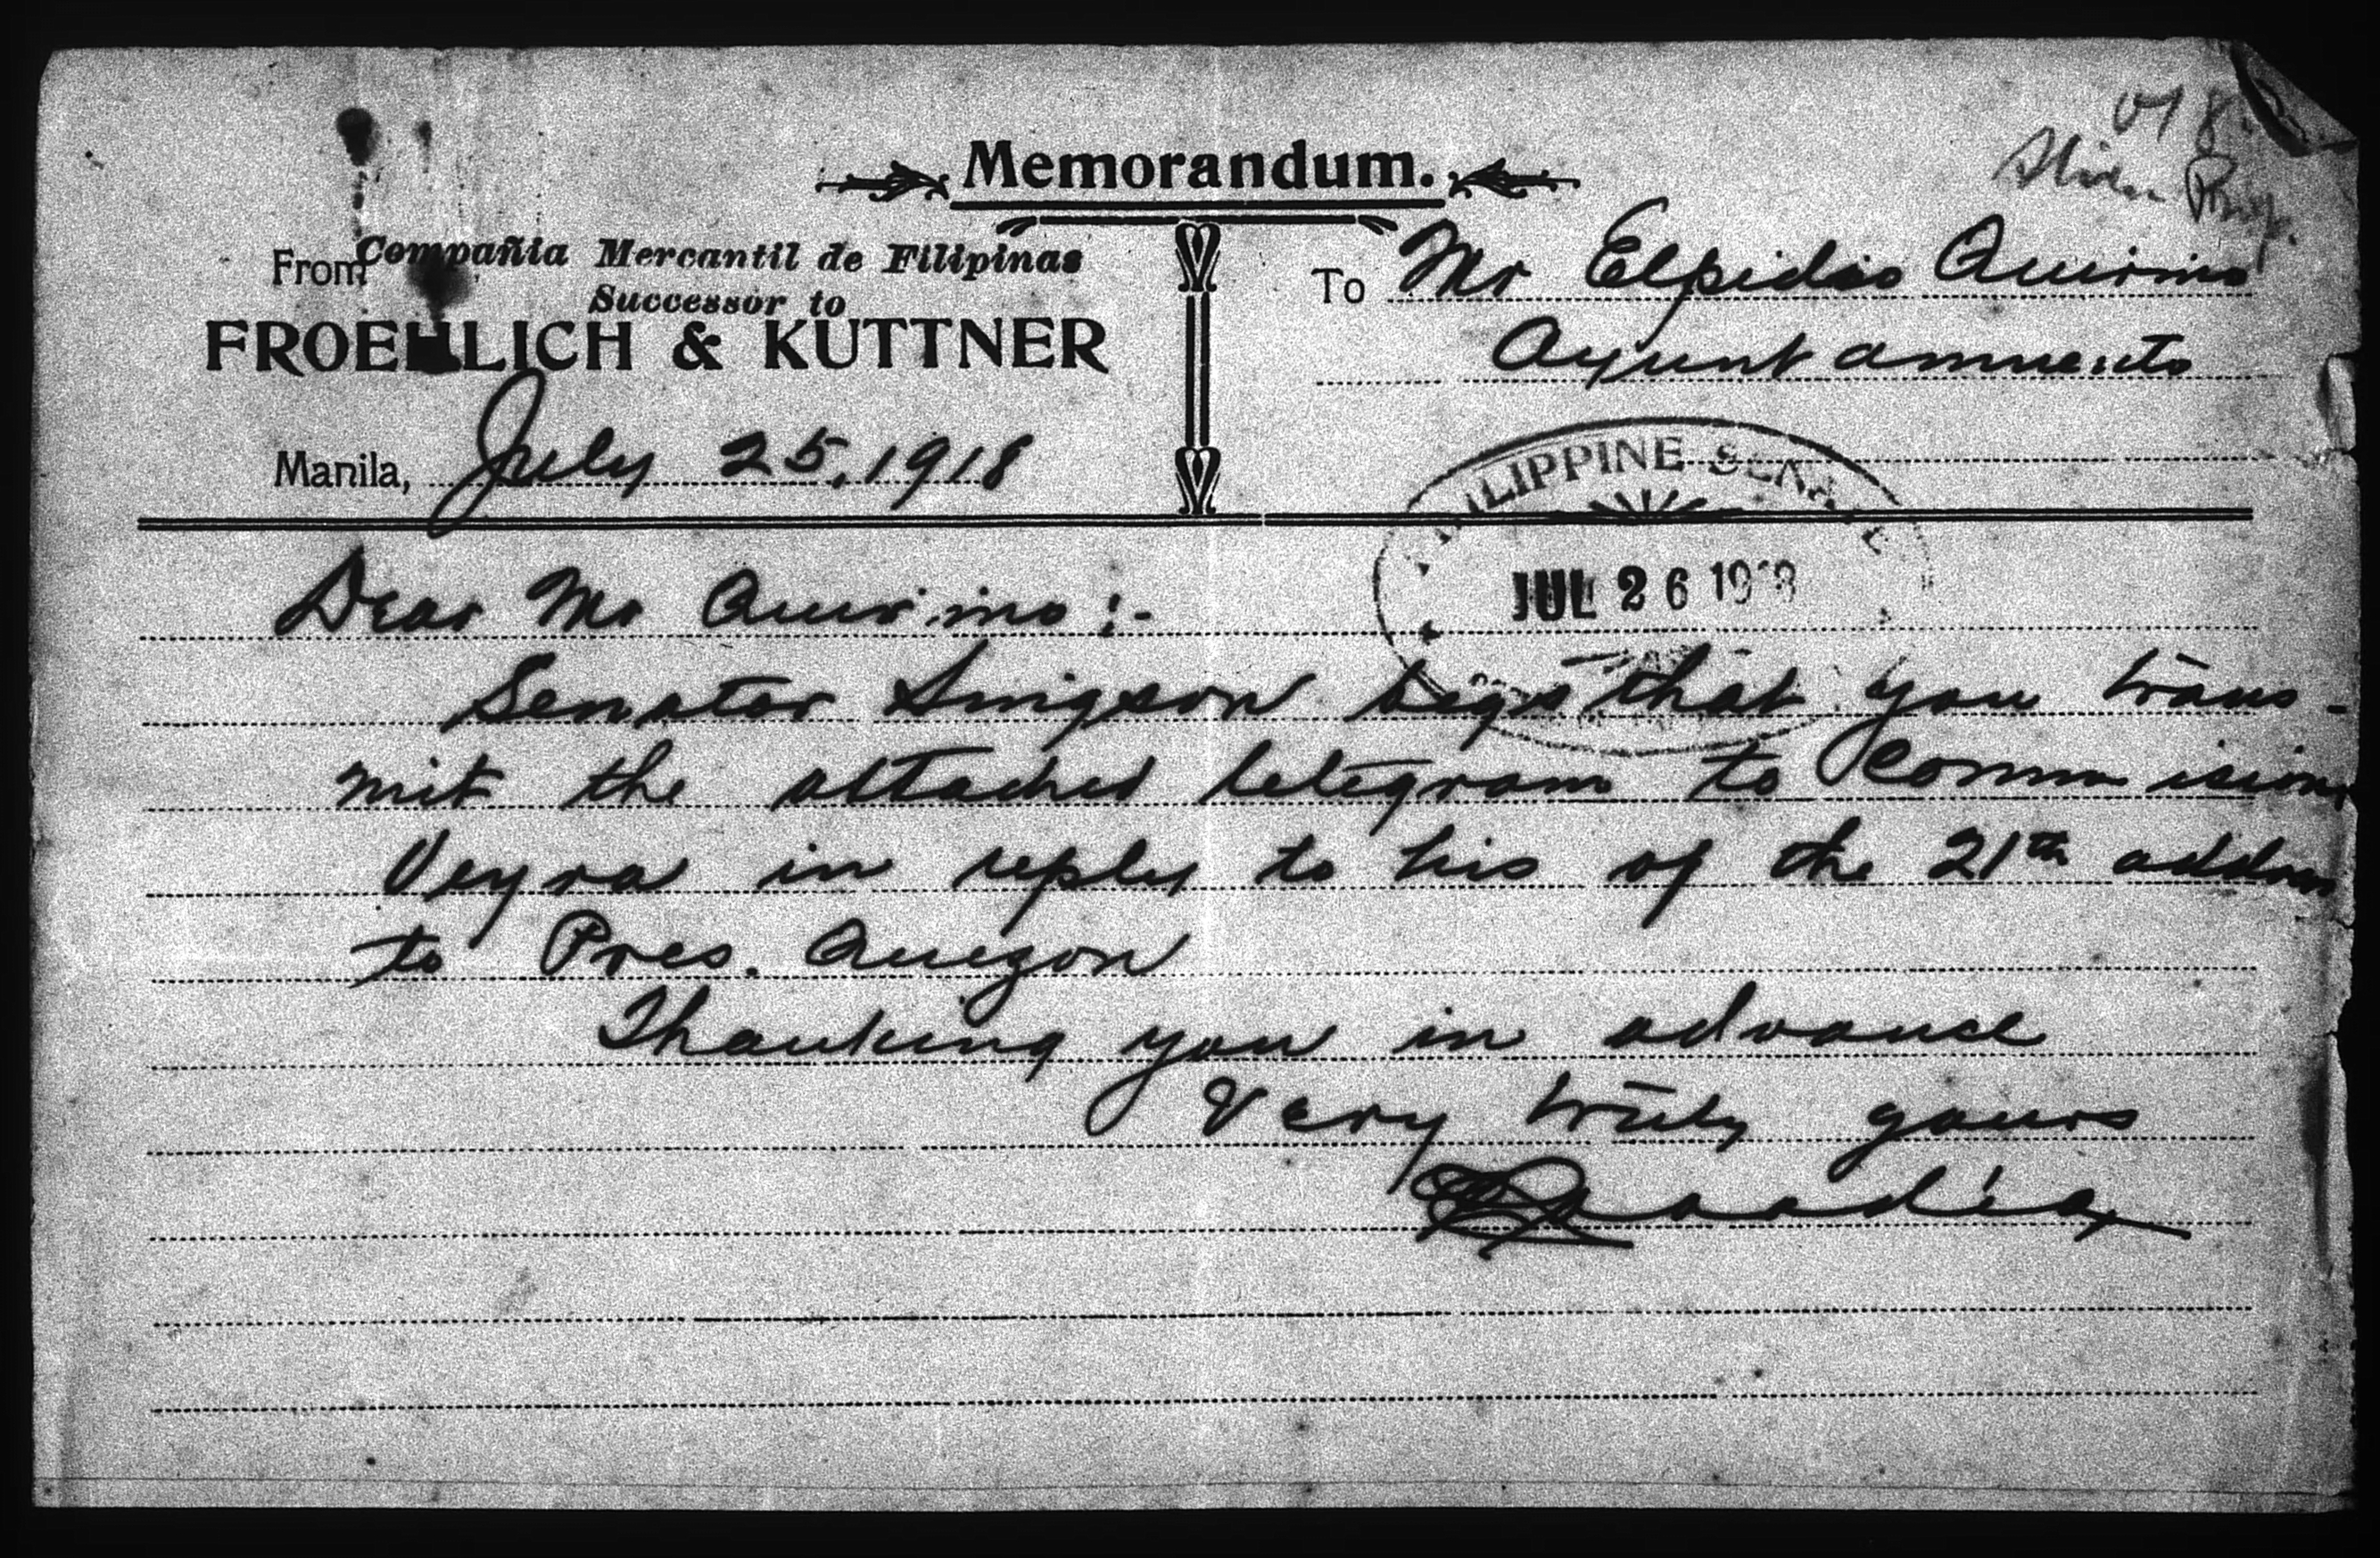 Memorandum.
From Compañia Mercantil de Filipinas
Successor to
FROEHLICH & KUTTNER
Manila, July 25, 1918
To Mr Elpidio Quirino
Ayuntamiento
PHILIPPINE SENATE
JUL 26 1918
Dear Mr Quirino :-
Senator Singson begs that you trans-
mit the attached telegram to Commision.
Veyra in reply to his of the 21th address
to Pres. Quezon
Thanking you in advance
Very truly yours